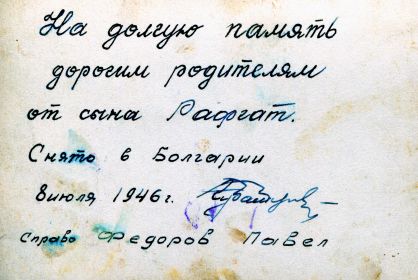 На долгую память
дорогим родителям
от сына Рафгат.
Снято в Болгарии
8 июля 1946 г.
справо Федоров Павел